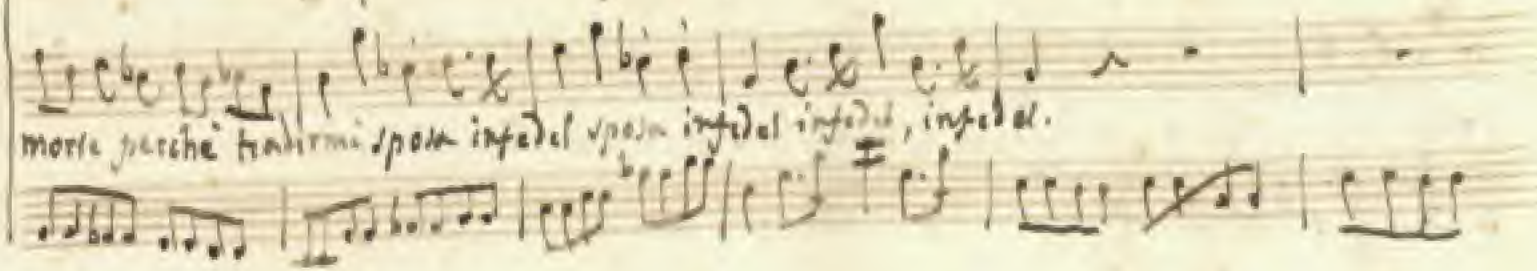 morte perchè tradirmi sposa infedel sposa infedel infedel, infedel.